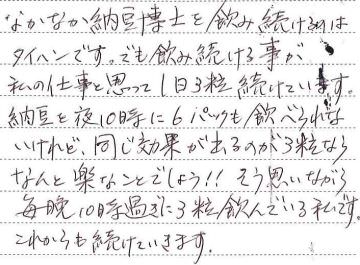 なかなか納豆博士を飲み続けるのは
タイヘンです。でも飲み続ける事が
私の仕事と思って1日3粒続けています。
納豆を夜10時に6パックも飲べられな
いけれど、同じ効果が出るのが3粒なら
なんと楽なことでしょう!!そう思いながら
毎晩10時過ぎに3粒飲んでいる私です。
これからも続けていきます。